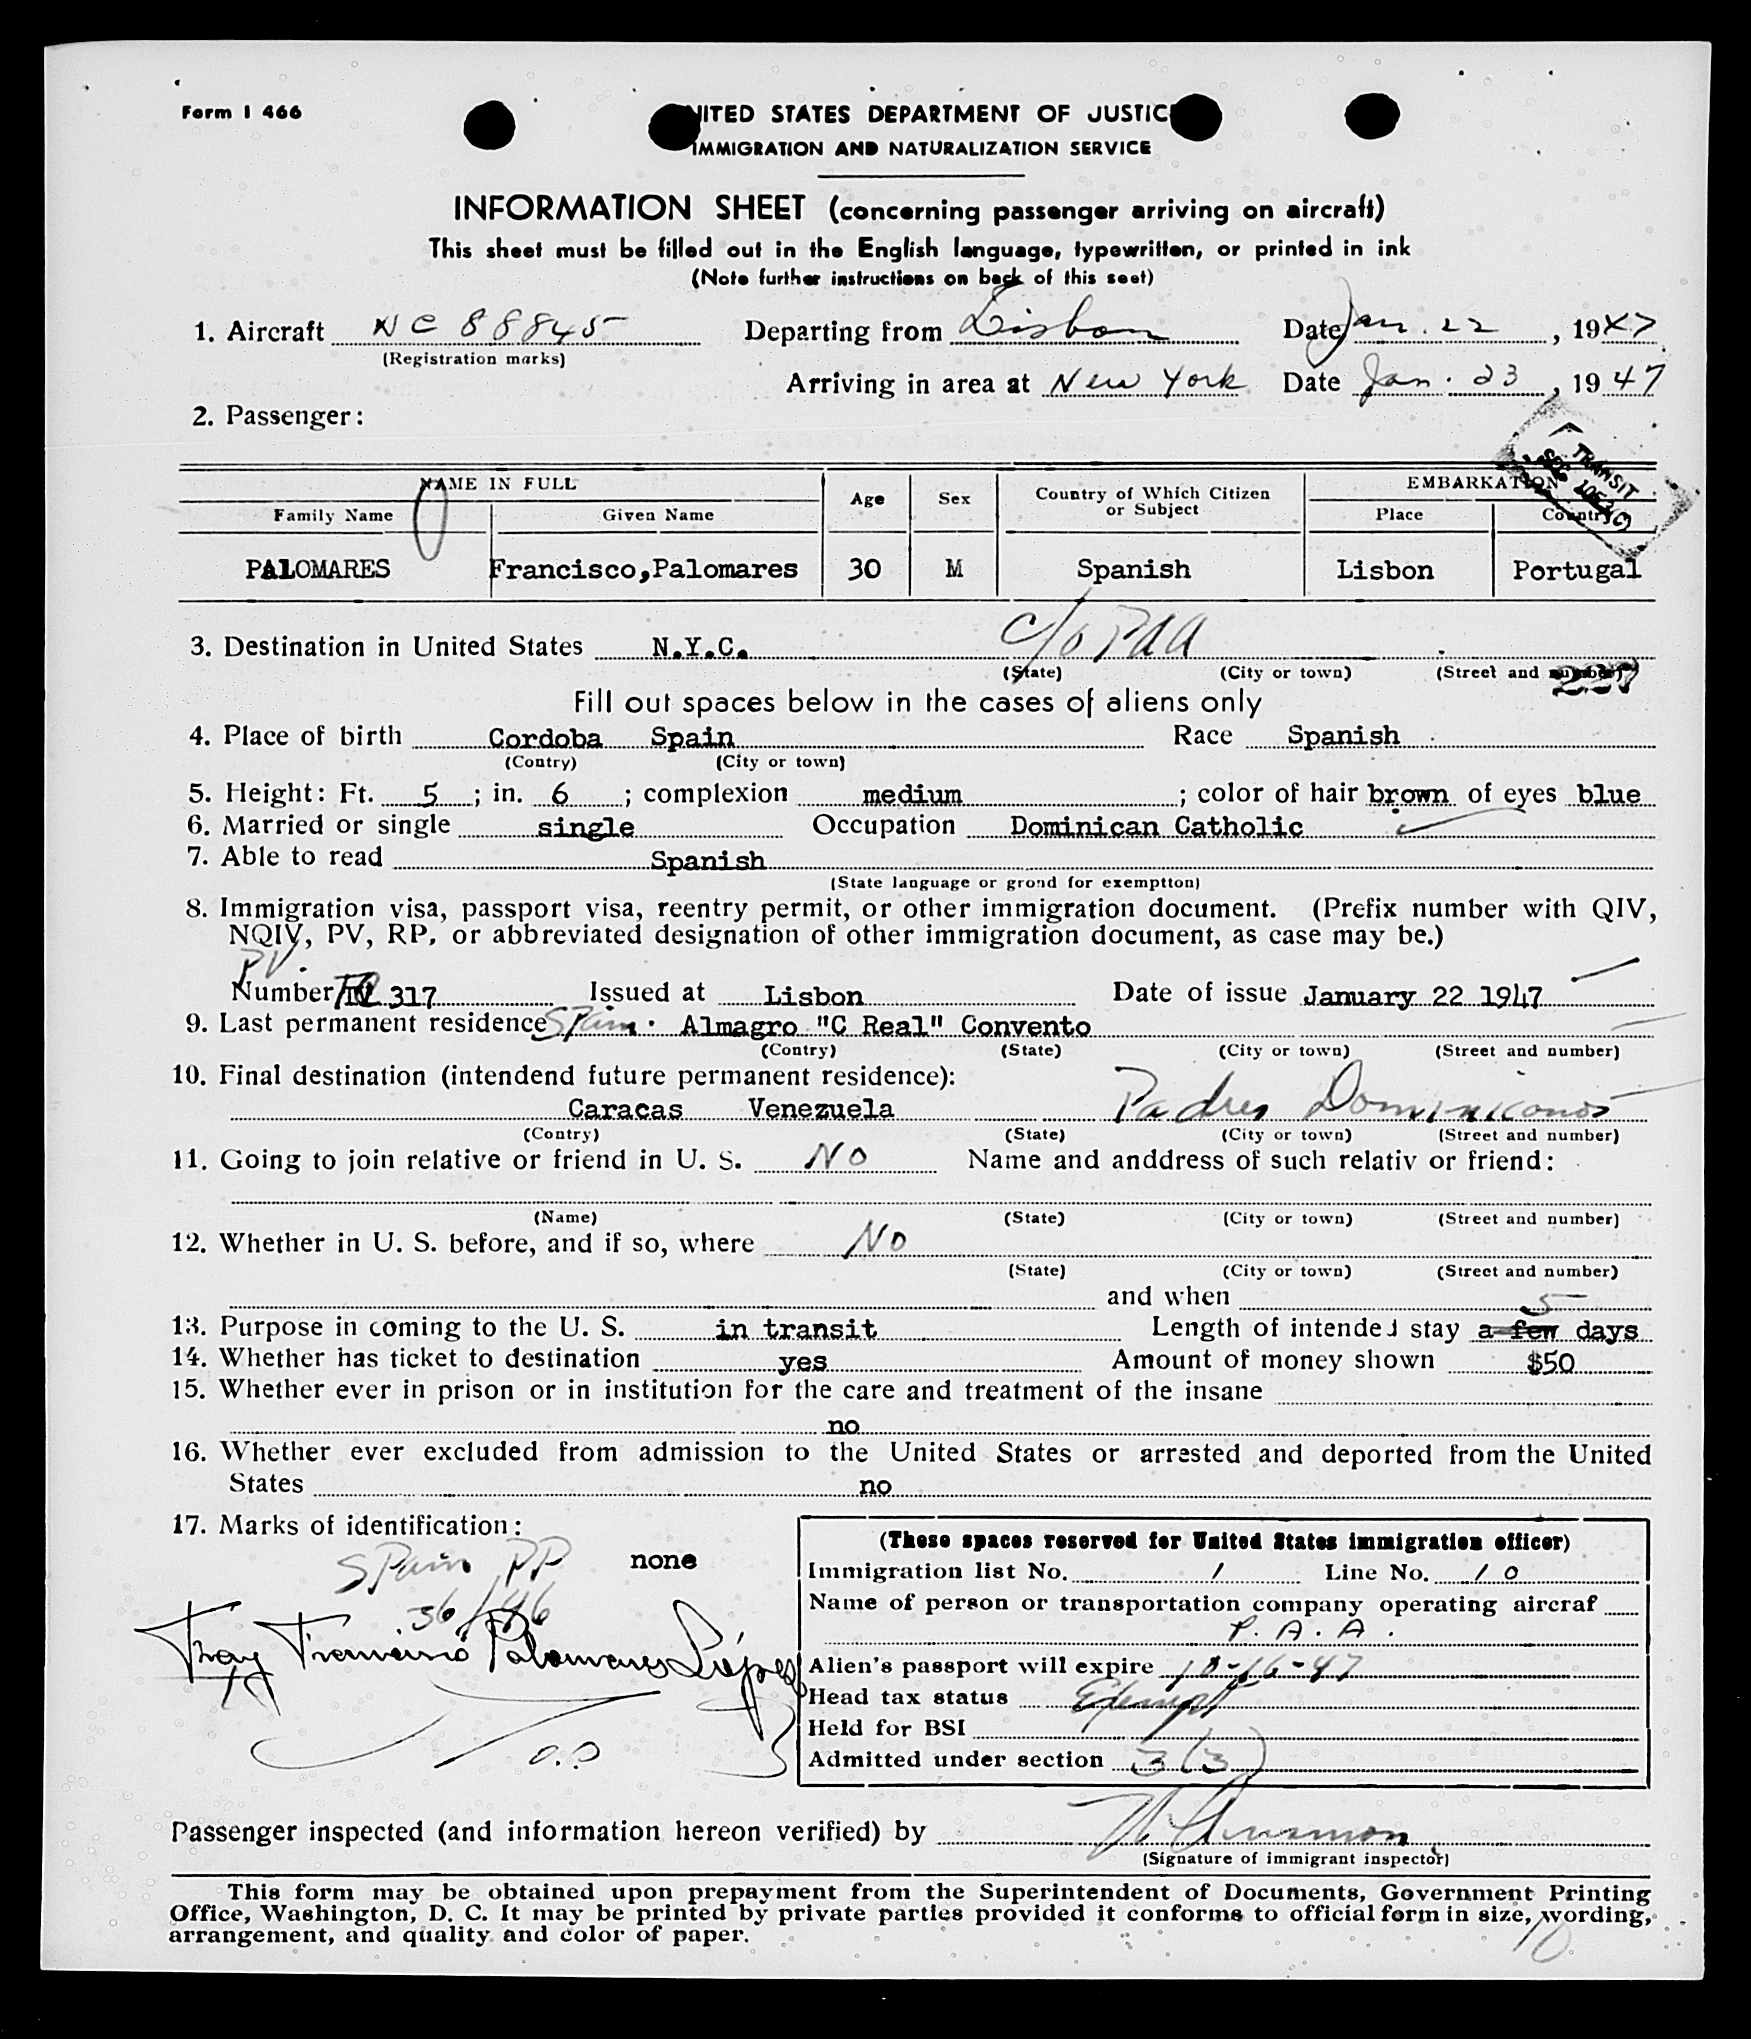 Form I 466
UNITED STATES DEPARTMENT OF JUSTICE
IMMIGRATION AND NATURALIZATION SERVICE
INFORMATION SHEET (concerning passenger arriving on aircraft)
This sheet must be filled out in the English language, typewritten, or printed in ink
(Note further instructions on back of this seet)
1. Aircraft NC 88845 Departing from Lisbon Date Jan. 22, 1947
(Registration marks)
Arriving in area at New York Date Jan. 23, 1947
2. Passenger:
TRANSIT
SEC 105.3(C)
NAME IN FULL Age Sex Country of Which Citizen or Subject EMBARKATION
Family Name Given Name Place Country
PALOMARES Francisco,Palomares 30 M Spanish Lisbon Portugal
3. Destination in United States N.Y.C. c/o PAA
(State) (City or town) (Street and number)
Fill out spaces below in the cases of aliens only
4. Place of birth Cordoba Spain Race Spanish
(Contry) (City or town)
5. Height: Ft. 5 ; in. 6 ; complexion medium ; color of hair brown of eyes blue
6. Married or single single Occupation Dominican Catholic
7. Able to read Spanish
(State language or grond for exemptton)
8. Immigration visa, passport visa, reentry permit, or other immigration document. (Prefix number with QIV,
NQIV, PV, RP, or abbreviated designation of other immigration document, as case may be.)
PV.
Number 317 Issued at Lisbon Date of issue January 22 1947
9. Last permanent residence Spain. Almagro "C Real" Convento
(Contry) (State) (City or town) (Street and number)
10. Final destination (intendend future permanent residence):
Caracas Venezuela Padres Dominicanos
(Contry) (State) (City or town) (Street and number)
11. Going to join relative or friend in U. S. NO Name and anddress of such relativ or friend:
(Name) (State) (City or town) (Street and number)
12. Whether in U. S. before, and if so, where NO
(State) (City or town) (Street and number)
and when
5
13. Purpose in coming to the U. S. in transit Length of intended stay a few days
14. Whether has ticket to destination yes Amount of money shown $50
15. Whether ever in prison or in institution for the care and treatment of the insane
no
16. Whether ever excluded from admission to the United States or arrested and deported from the United
States no
17. Marks of identification:
none
Spain PP
36/46
Fray Francisco Palomares López
O.P
(These spaces reserved for United States immigration officer)
Immigration list No. 1 Line No. 10
Name of person or transportation company operating aircraf
P. A. A.
Alien's passport will expire 10-16-47
Head tax status Exempt
Held for BSI
Admitted under section 3(3)
Passenger inspected (and information hereon verified) by
(Signature of immigrant inspector)
This form may be obtained upon prepayment from the Superintendent of Documents, Government Printing
Office, Washington, D. C. It may be printed by private parties provided it conforms to official form in size, wording,
arrangement, and quality and color of paper.
10